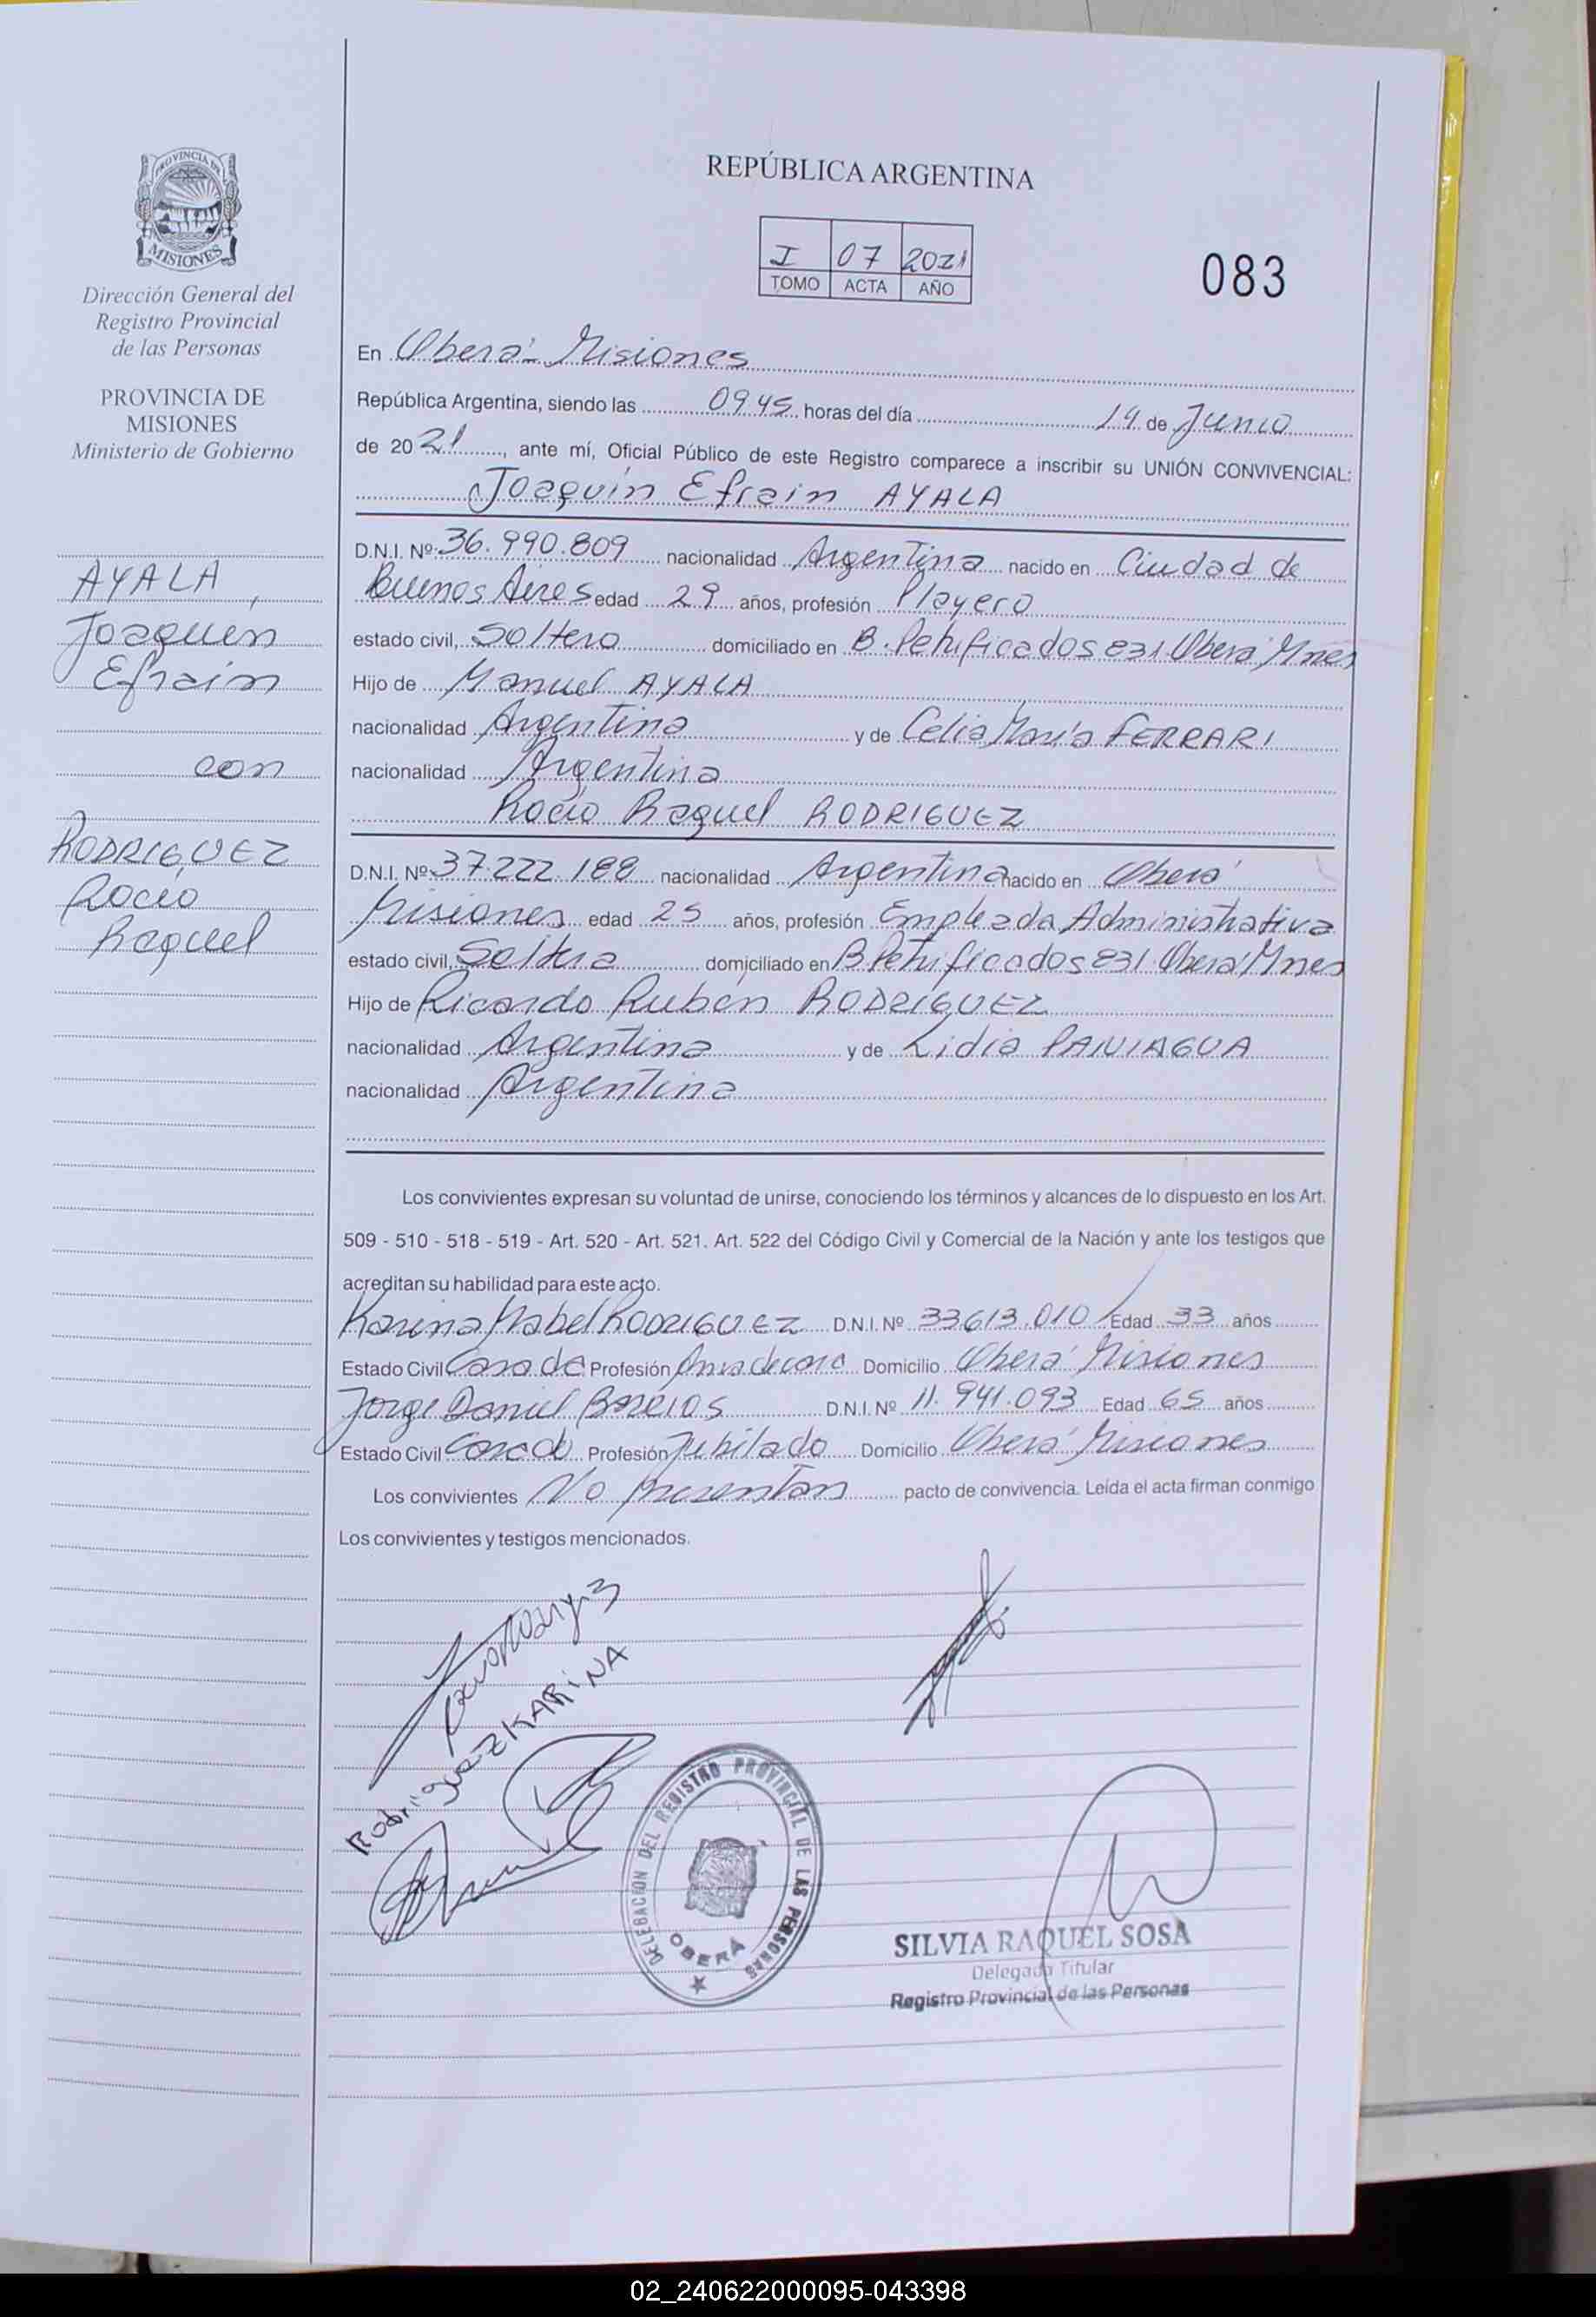 PROVINCIA DE
MISIONES
Dirección General del
Registro Provincial
de las Personas
PROVINCIA DE
MISIONES
Ministerio de Gobierno
AYALA,
Joaquin
Efrain
con
RODRIGUEZ
Rocio
Raquel
REPÚBLICA ARGENTINA
I 07 2021
TOMO ACTA AÑO
083
En Oberá - Misiones
República Argentina, siendo las 09.45 horas del día 14 de Junio
de 2021, ante mí, Oficial Público de este Registro comparece a inscribir su UNIÓN CONVIVENCIAL:
Joaquín Efrain AYALA
D.N.I. Nº 36.990.809 nacionalidad Argentina nacido en Ciudad de
Buenos Aires edad 29 años, profesión Playero
estado civil, Soltero domiciliado en B. Petrificados 831 Oberá Mnes
Hijo de Manuel AYALA
nacionalidad Argentina y de Celia María FERRARI
nacionalidad Argentina
Rocío Raquel RODRIGUEZ
D.N.I. Nº 37.222.188 nacionalidad Argentina nacido en Oberá
Misiones edad 25 años, profesión Empleada Administrativa
estado civil, Soltera domiciliado en B Petrificados 831 Oberá Mnes
Hijo de Ricardo Rubén RODRIGUEZ
nacionalidad Argentina y de Lidia PANIAGUA
nacionalidad Argentina
Los convivientes expresan su voluntad de unirse, conociendo los términos y alcances de lo dispuesto en los Art.
509 - 510 - 518 - 519 - Art. 520 - Art. 521. Art. 522 del Código Civil y Comercial de la Nación y ante los testigos que
acreditan su habilidad para este acto.
Karina Mabel RODRIGUEZ D.N.I. Nº 33613.010 Edad 33 años
Estado Civil Casada Profesión Ama de casa Domicilio Oberá Misiones
Jorge Daniel D.N.I. Nº 11.941.093 Edad 65 años
Estado Civil Casado Profesión Jubilado Domicilio Oberá Misiones
Los convivientes No presentan pacto de convivencia. Leída el acta firman conmigo
Los convivientes y testigos mencionados.
Rodriguez KARiNA
DELEGACIÓN DEL REGISTRO PROVINCIAL DE LAS PERSONAS
OBERÁ
SILVIA RAQUEL SOSA
Delegada Titular
Registro Provincial de las Personas
02_240622000095-043398